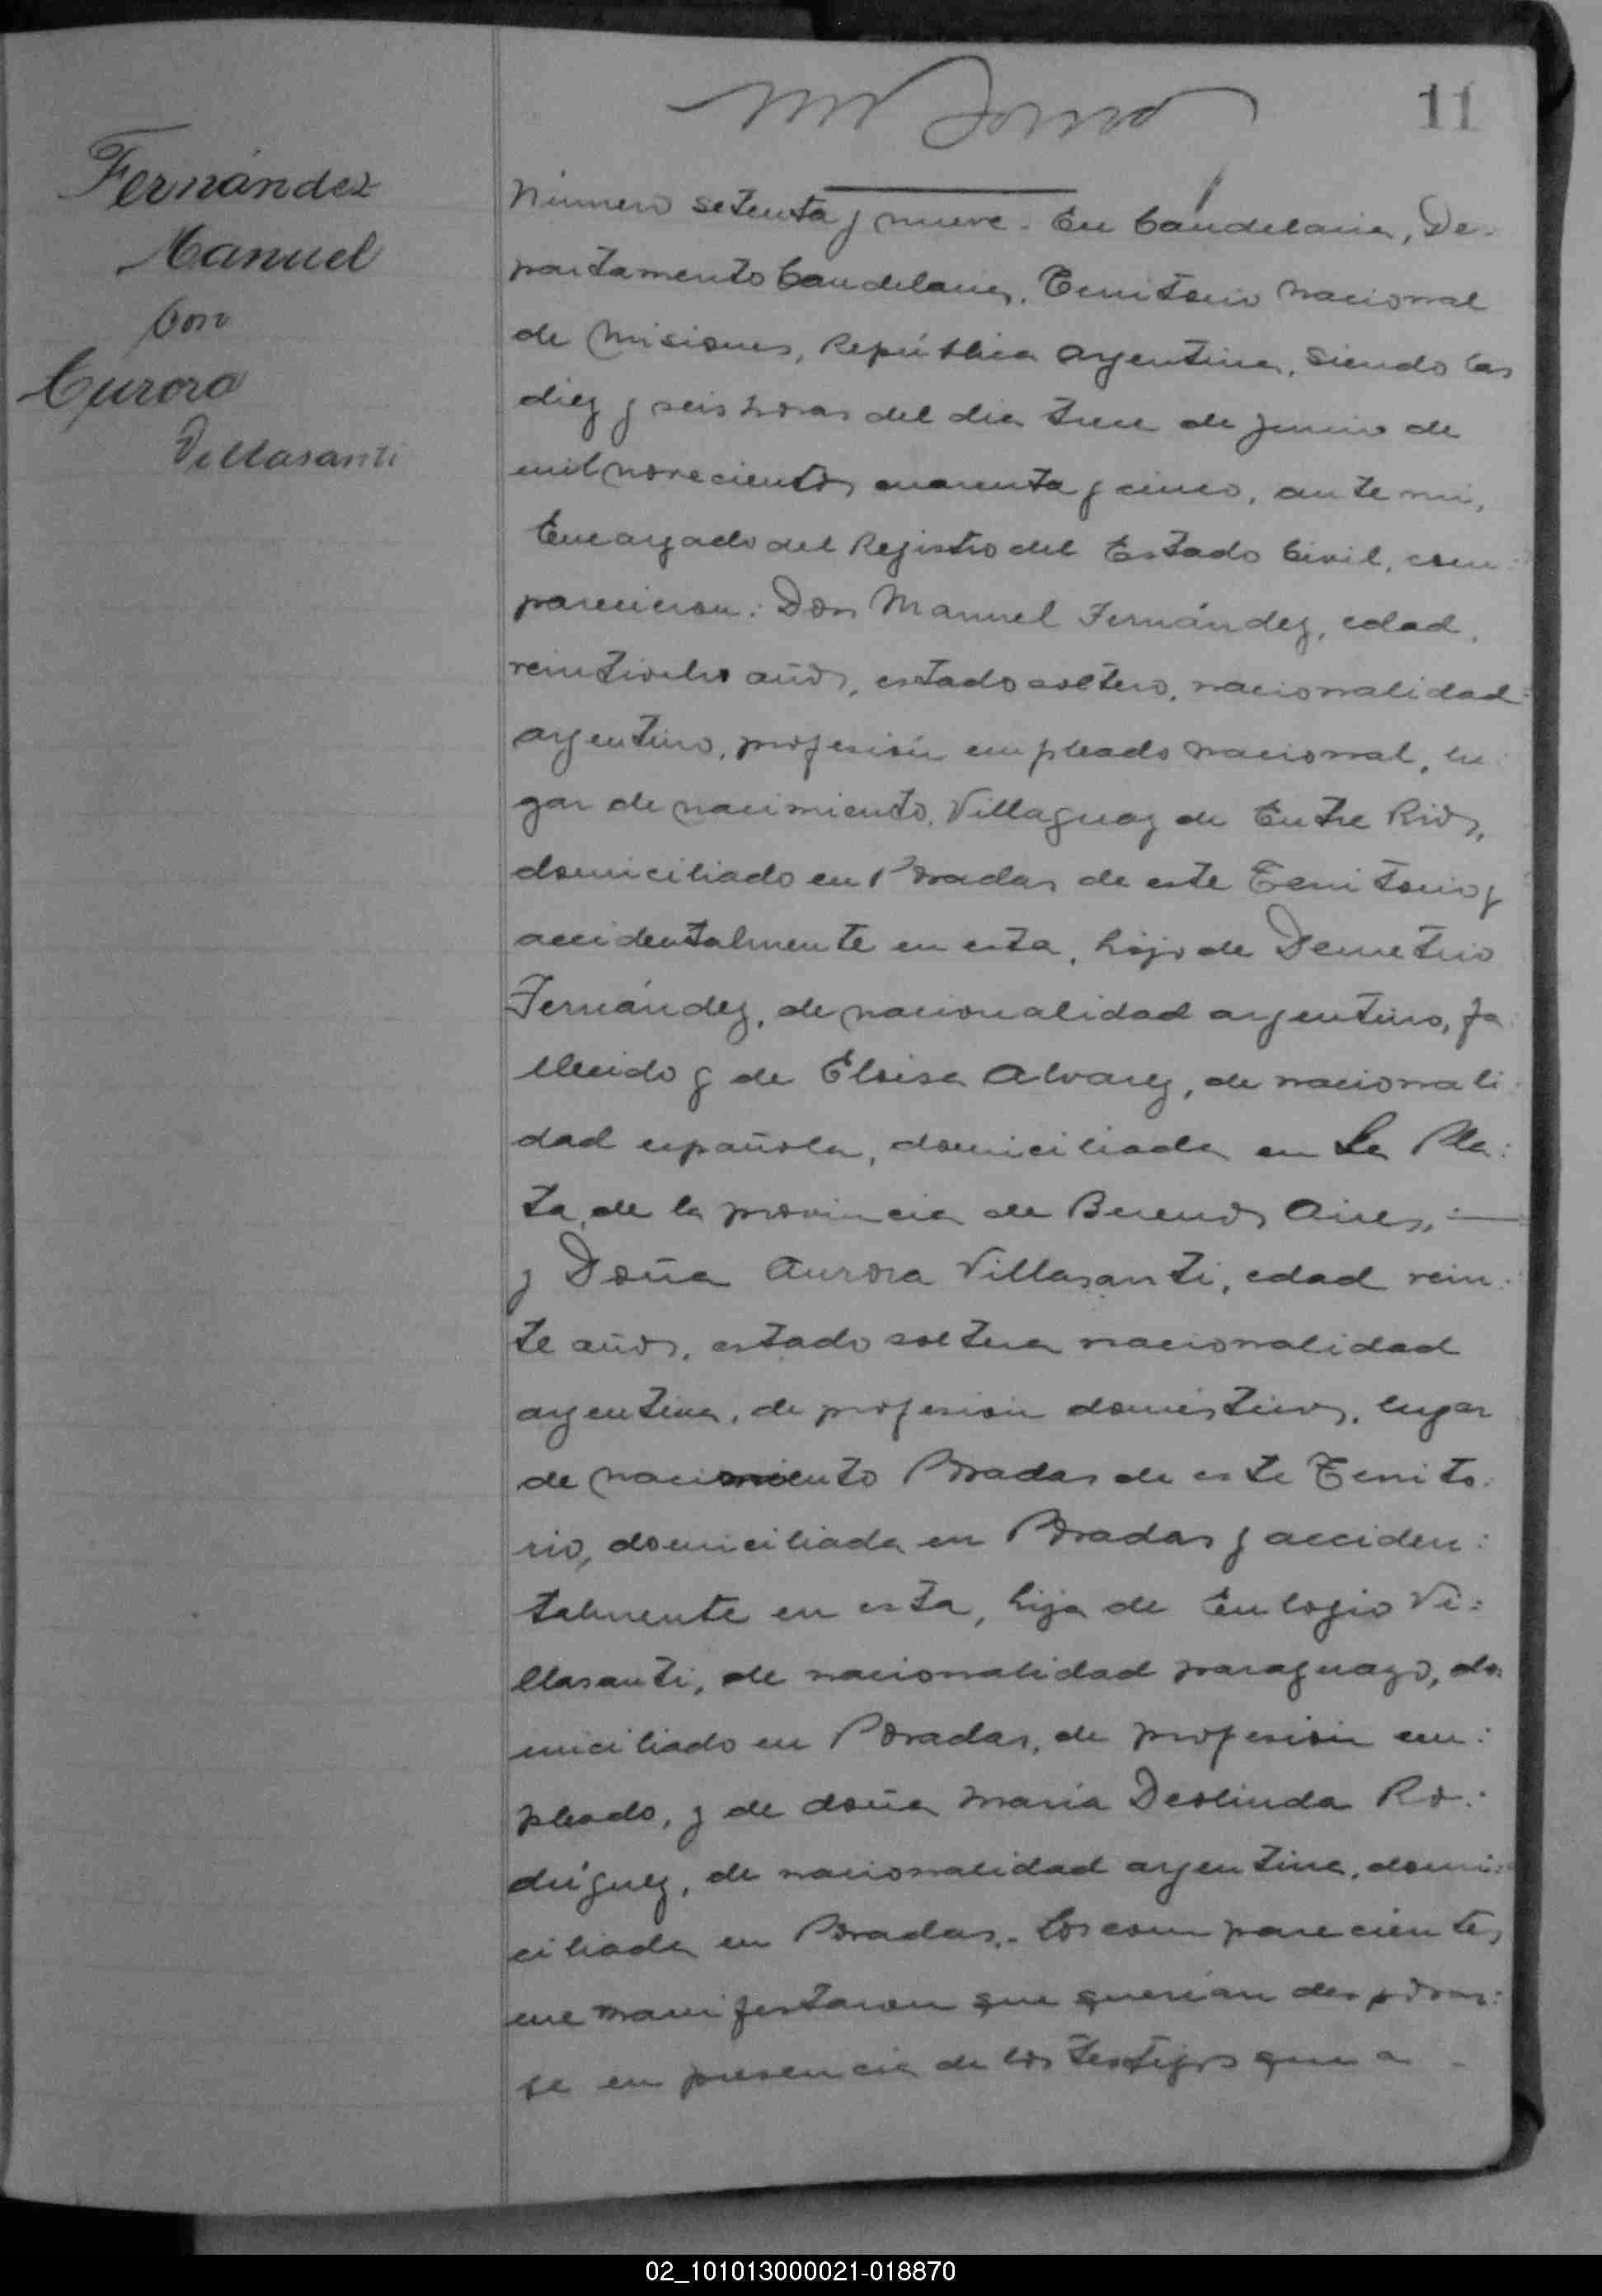 11
Fernández
Manuel
Con
Aurora
Villasanti
Número setenta y nueve.- En Candelaria, De-
partamento Candelaria, Territorio Nacional
de Misiones, República Argentina, siendo las
diez y seis horas del día trece de junio de
mil novecientos cuarenta y cinco, ante mi,
Encargado del Registro del Estado Civil, com-
parecieron: Don Manuel Fernández, edad,
veintiocho años, estado soltero, nacionalidad
argentino, profesión empleado nacional, lu-
gar de nacimiento, Villaguay de Entre Rios,
domiciliado en Posadas de este Territorio y
accidentalmente en esta, hijo de Demetrio
Fernández, de nacionalidad argentino, fa-
llecido y de Eloisa Alvarez, de nacionali-
dad española, domiciliada en La Pla:
ta, de la provincia de Buenos Aires, :—
y Doña Aurora Villasanti, edad vein-
te años, estado soltera nacionalidad
argentina, de profesión domésticos, lugar
de nacimiento Posadas de este Territo:
rio, domiciliada en Posadas y acciden:
talmente en esta, hija de Eulogio Vi:
llasanti, de nacionalidad paraguayo, do:
miciliado en Posadas, de profesión em:
pleado, y de doña María Deolinda Ro:
dríguez, de nacionalidad argentina, domi:
ciliada en Posadas.- Los comparecientes
me manifestaron que querían desposar:
se en presencia de los testigos que a -
02_101013000021-018870